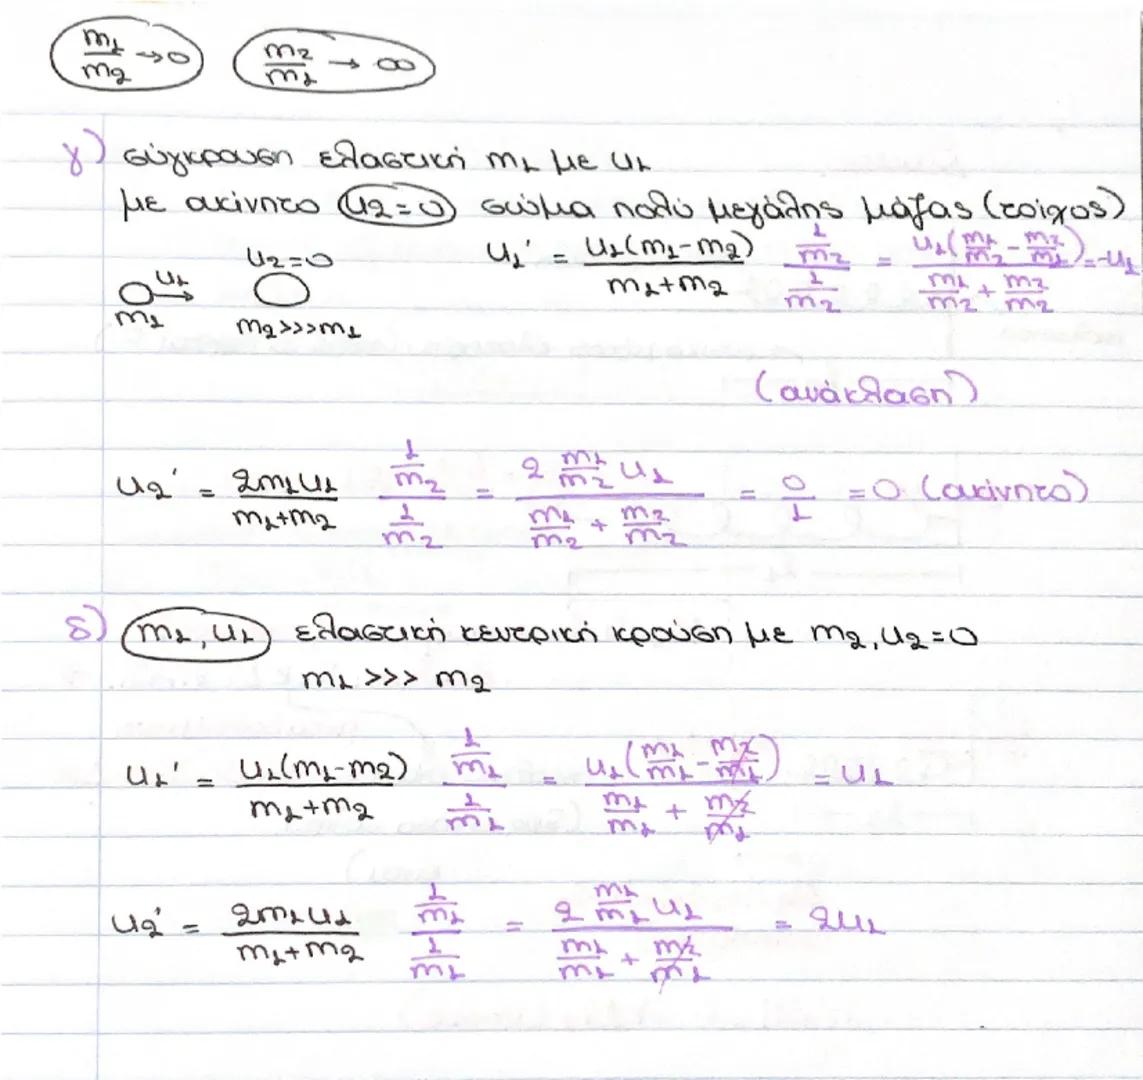 m₁/m₂ → 0   m₂/m₁ → ∞
γ) σύγκρουση ελαστική m₁ με υ₁
με ακίνητο υ₂=0 σώμα πολύ μεγάλης μάζας (τοίχος)
υ₁ υ₂=0
m₁ m₂>>>m₁
υ₁' = υ₁(m₁-m₂)/(m₁+m₂) (1/m₂)/(1/m₂) = υ₁(m₁/m₂ - m₂/m₁)/(m₁/m₂ + m₂/m₂) = -υ₁
(ανάκλαση)
υ₂' = 2m₁υ₁/(m₁+m₂) (1/m₂)/(1/m₂) = 2 m₁/m₂ υ₁/(m₁/m₂ + m₂/m₂) = 0/1 = 0 (ακίνητο)
δ) m₁, υ₁ ελαστική κεντρική κρούση με m₂, υ₂=0
m₁ >>> m₂
υ₁' = υ₁(m₁-m₂)/(m₁+m₂) (1/m₁)/(1/m₁) = υ₁(m₁/m₁ - m₂/m₁)/(m₁/m₁ + m₂/m₁) = υ₁
υ₂' = 2m₁υ₁/(m₁+m₂) (1/m₁)/(1/m₁) = 2 m₁/m₁ υ₁/(m₁/m₁ + m₂/m₁) = 2υ₁